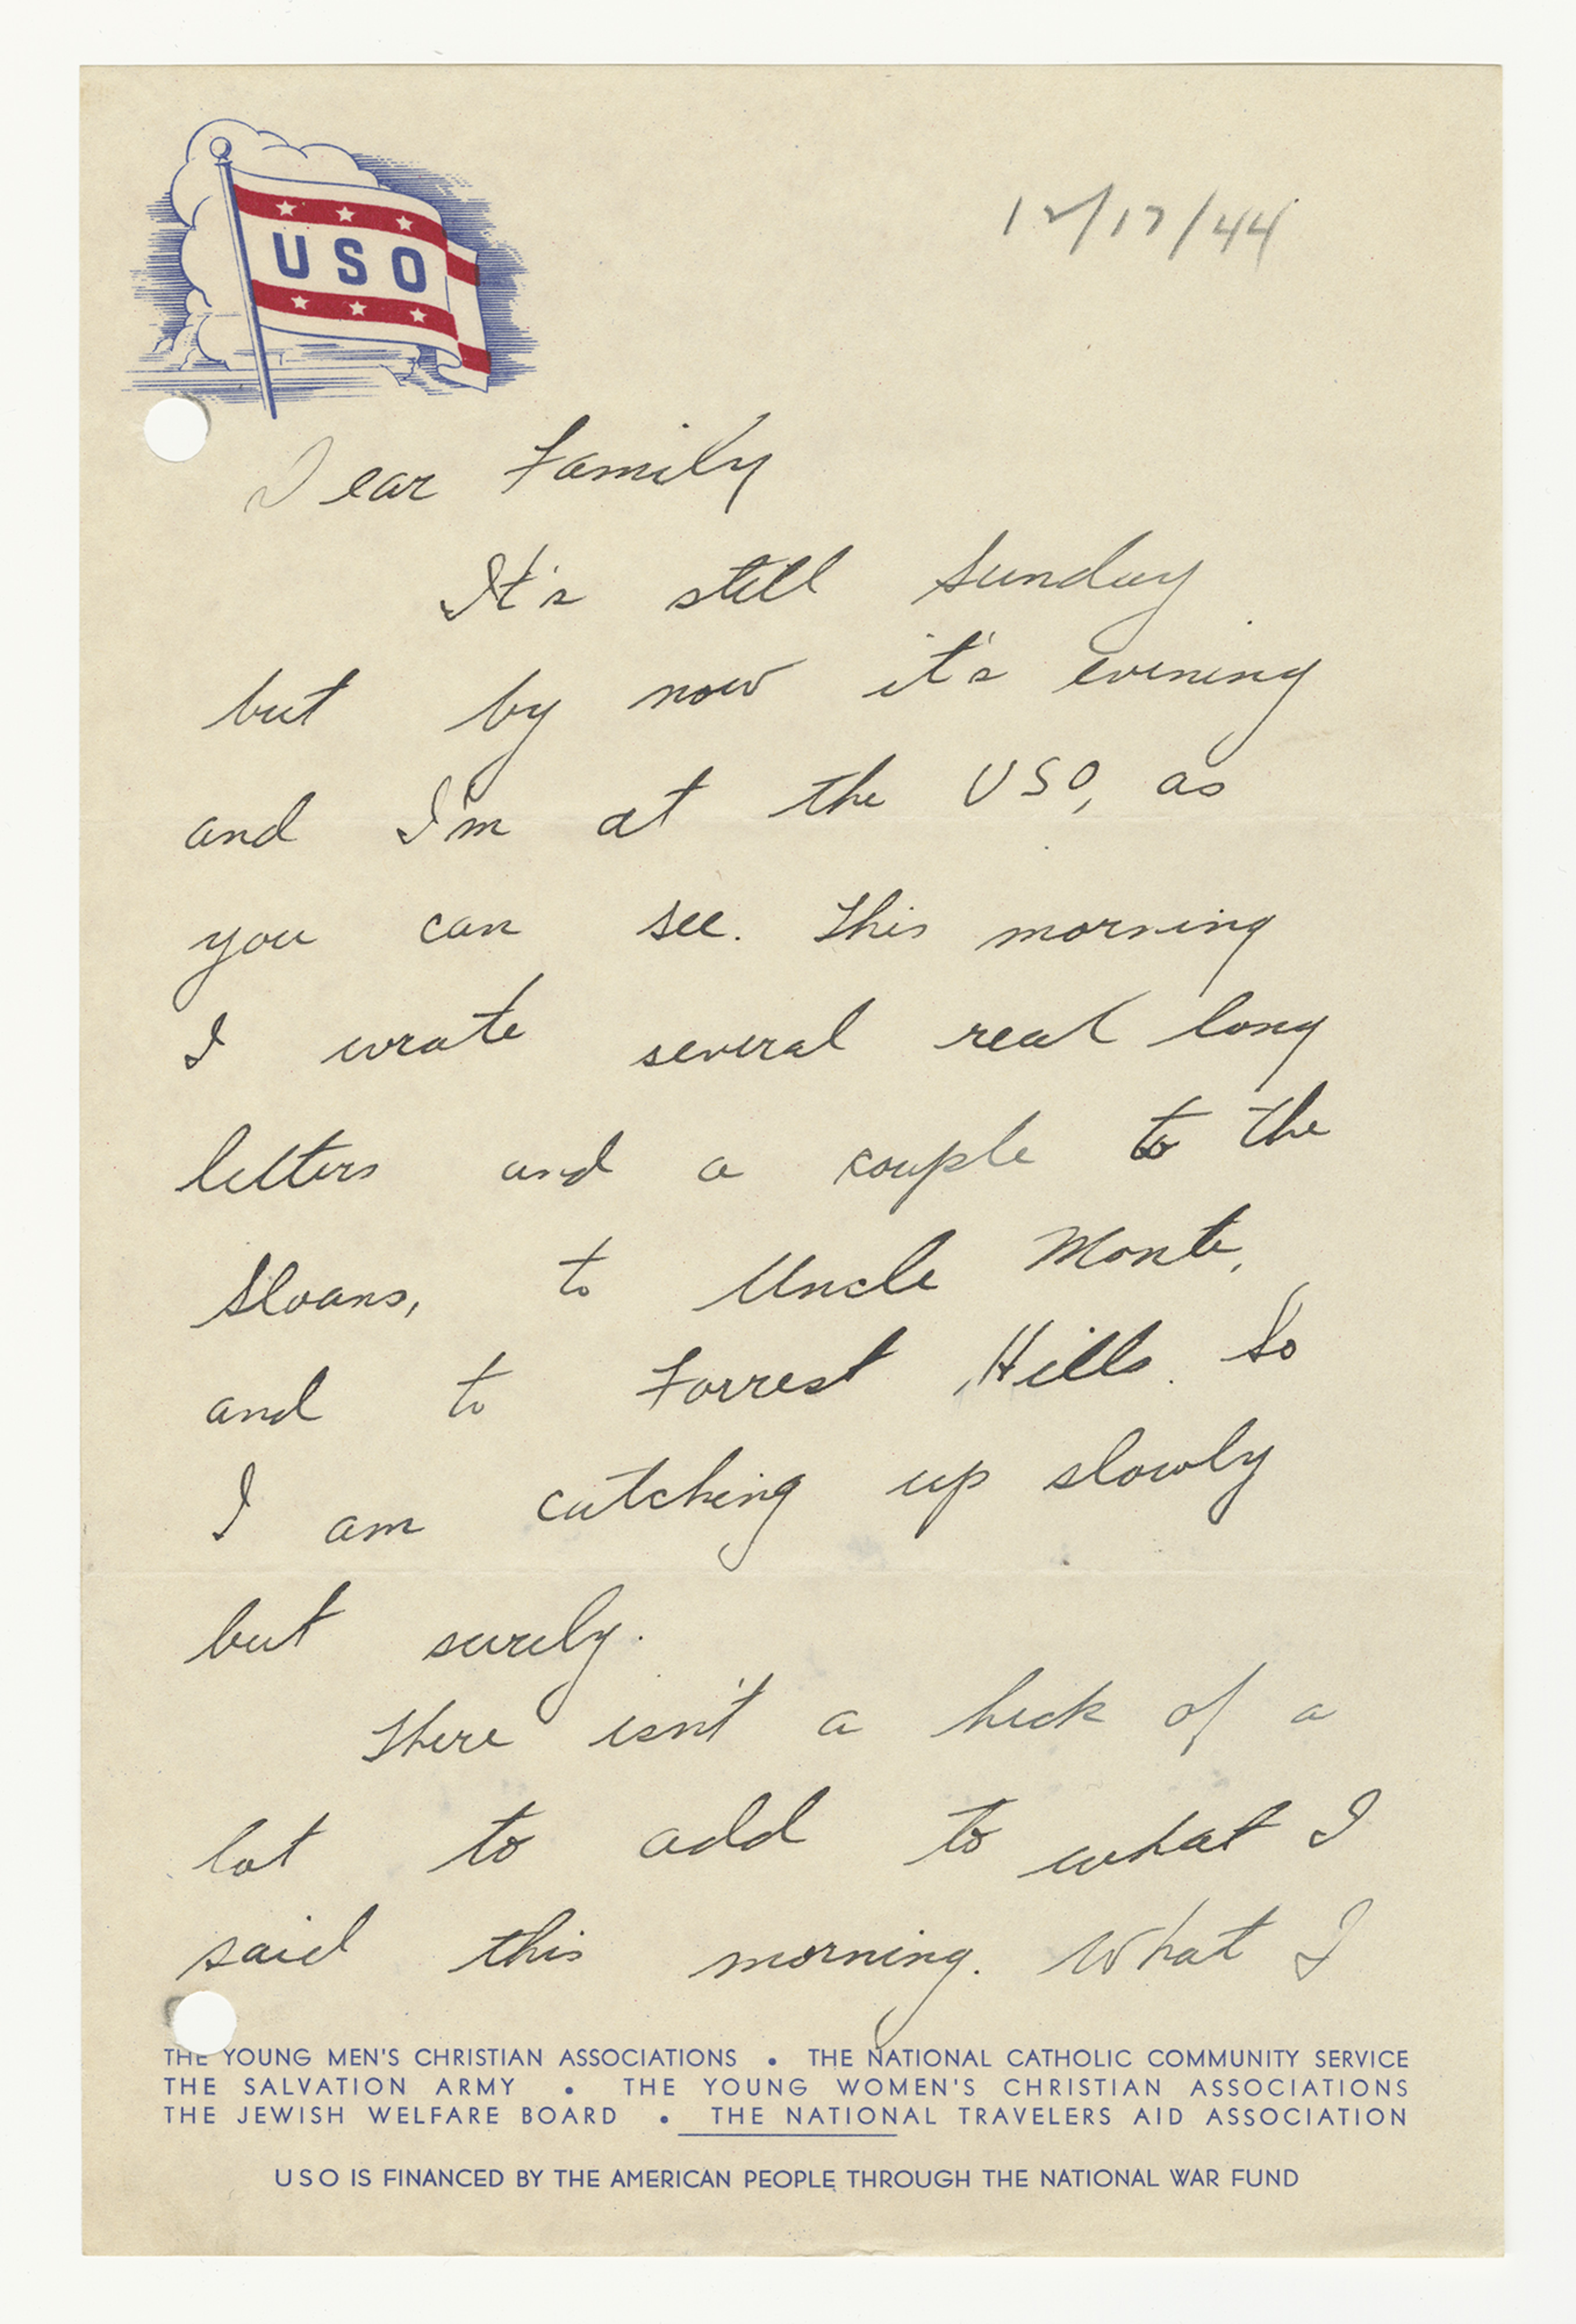 USO
12/17/44
Dear Family
It's still Sunday
but by now it's evening
and I'm at the USO, as
you can see. This morning
I wrote several real long
letters and a couple to the
Sloans, to Uncle Monte,
and to Forrest Hills. So
I am catching up slowly
but surely.
There isn't a heck of a
lot to add to what I
said this morning. What I
THE YOUNG MEN'S CHRISTIAN ASSOCIATIONS • THE NATIONAL CATHOLIC COMMUNITY SERVICE
THE SALVATION ARMY • THE YOUNG WOMEN'S CHRISTIAN ASSOCIATIONS
THE JEWISH WELFARE BOARD • THE NATIONAL TRAVELERS AID ASSOCIATION
USO IS FINANCED BY THE AMERICAN PEOPLE THROUGH THE NATIONAL WAR FUND